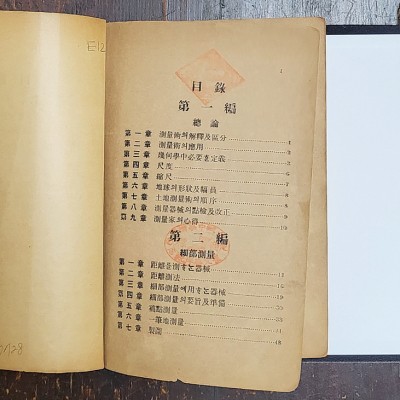 E12
目錄
第一編
總論
第一章 測量術의解釋及區分 1
第二章 測量術의應用
第三章 幾何學中必要한定義
第四章 尺度
第五章 縮尺
第六章 地球의形狀及幅員
第七章 土地測量術의順序
第八章 測量器械의點檢及改正
第九章 測量家의心得
第二編
細部測量
第一章 距離를測하는器械
第二章 距離測法
第三章 細部測量에用하는器械
第四章 細部測量의要旨及準備
第五章 補點測量
第六章 一筆地測量
第七章 製圖 48